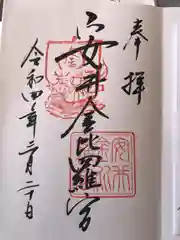 奉拝
安井金比羅宮
令和四年三月二十日